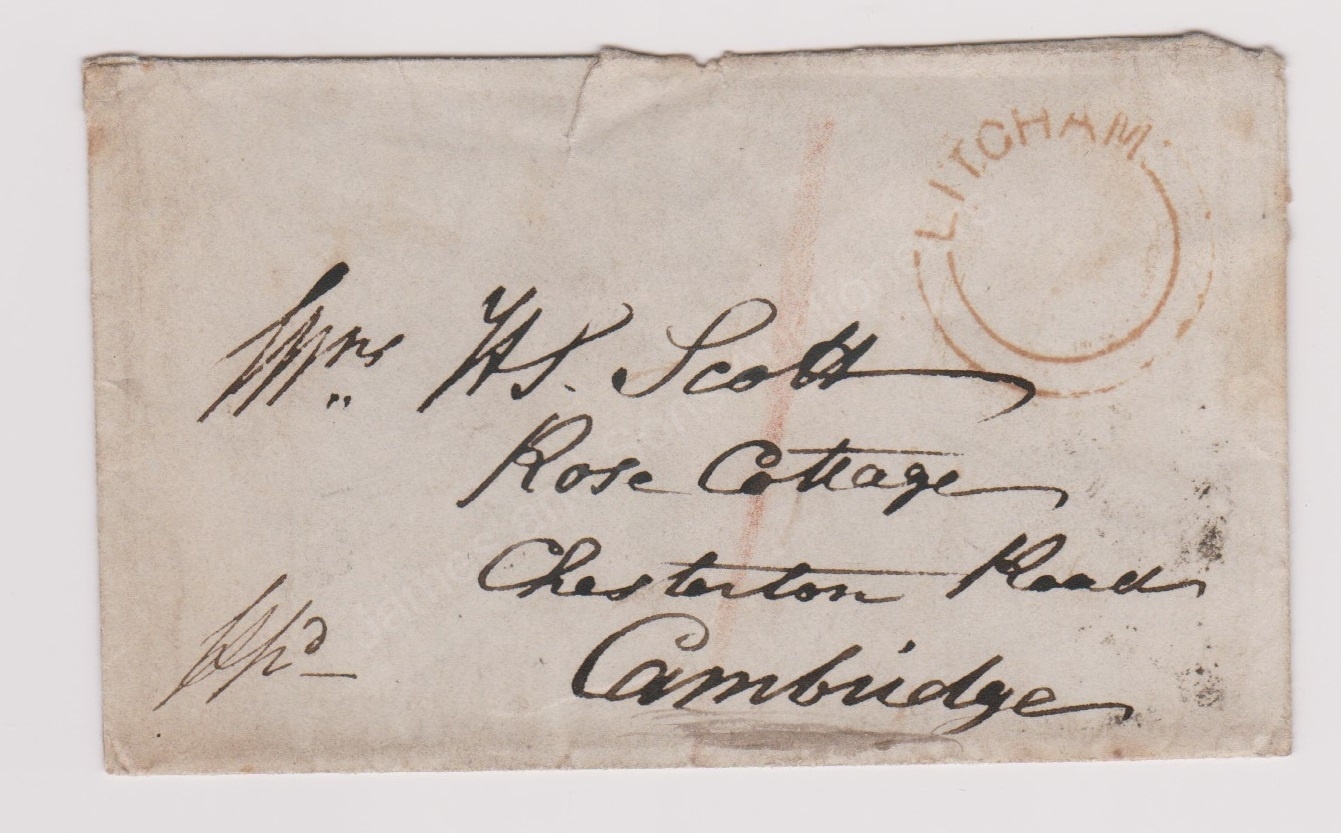 LITCHAM
Mrs HS. Scott
Rose Cottage
Chesterton Road
Ppd
Cambridge